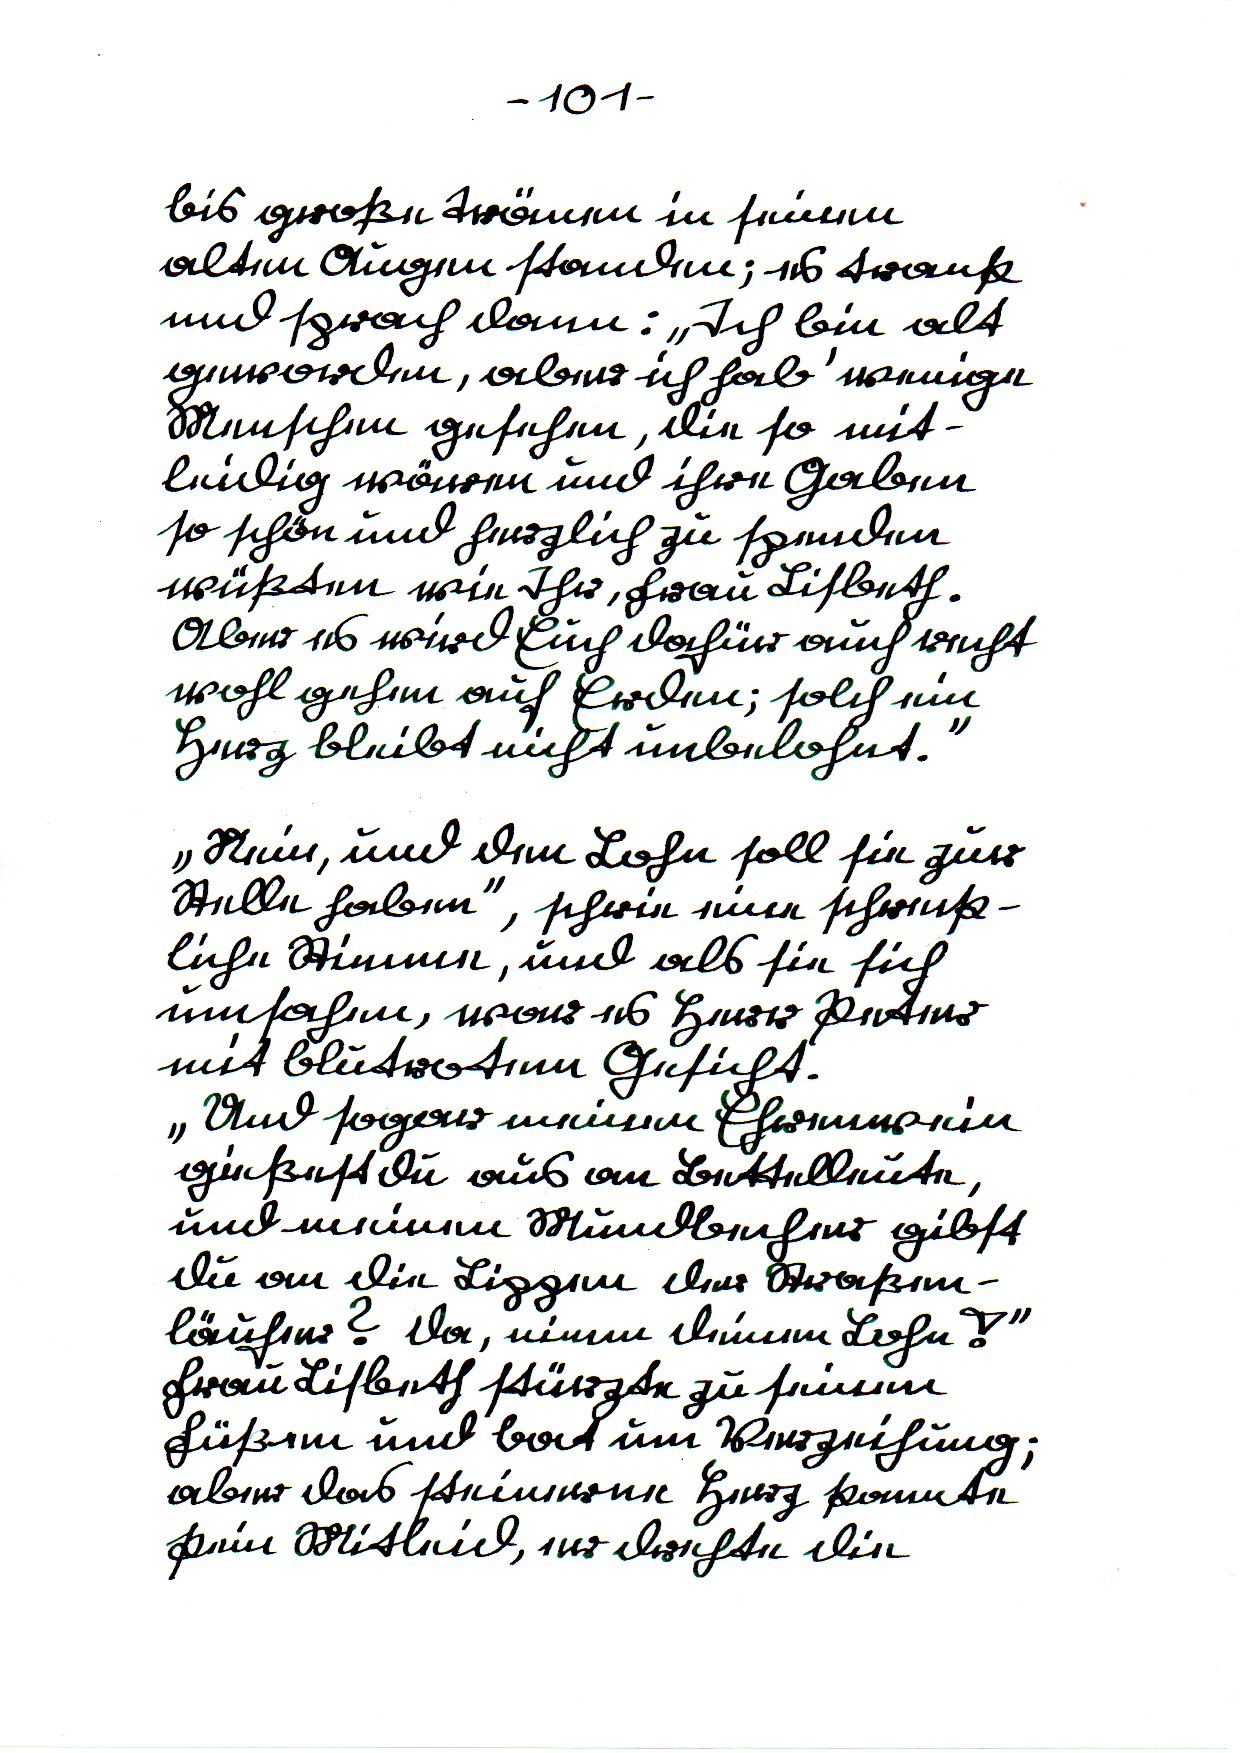 -101-
bis große Tränen in seinen
alten Augen standen; es trank
und sprach dann: „Ich bin alt
geworden, aber ich hab' wenige
Menschen gesehen, die so mit-
leidig wären und ihre Gaben
so schön und herzlich zu spenden
wüßten wie Ihr, Frau Lisbeth.
Aber es wird Euch dafür auch recht
wohl gehen auf Erden; solch ein
Herz bleibt nicht unbelohnt."
„Nein, und den Lohn soll sie zur
Stelle haben", schrie eine schreck-
liche Stimme, und als sie sich
umsahen, war es Herr Peter
mit blutrotem Gesicht.
„Und sogar meinen Ehrenwein
gießest du aus an Bettelleute,
und meinen Mundbecher gibst
du an die Lippen der Straßen-
läufer? Da, nimm deinen Lohn!"
Frau Lisbeth stürzte zu seinen
Füßen und bat um Verzeihung;
aber das steinerne Herz kannte
kein Mitleid, er drehte die